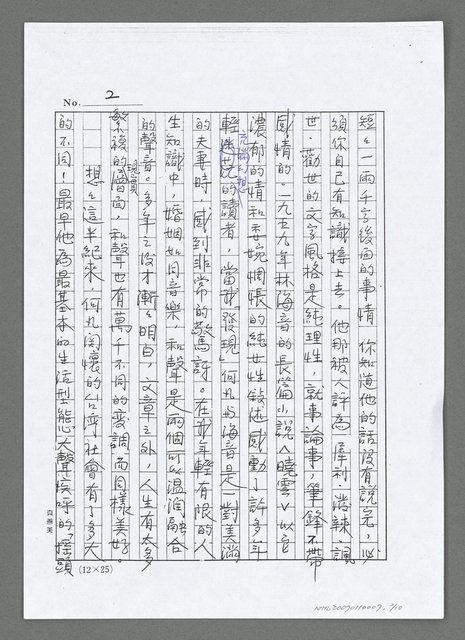 No. 2
短々一兩千字後面的事情,你知道他的話沒有說完,必
須你自己有知識接上去。他那被人評為犀利、潑辣、諷
世、勸世的文字風格是純理性,就事論事,筆鋒不帶
感情的。一九五九年林海音的長篇小說《曉雲》以它
濃郁的情和委婉惆悵的純女性敘述感動了許多年
輕的讀者,當我發現」何凡與海音是一對美滿
的夫妻時,感到非常的驚訝。在我年輕有限的人
生知識中,婚姻如同音樂,和聲是兩個可以溫潤融合
的聲音。多年之後才漸々明白,文章之外,人生有太多
現實
繁複的層面,和聲也有萬千不同的變調而同樣美好。
想々這半紀來,何凡關懷的台灣社會有了多大
的不同!最早他為最基本的生活型態大聲疾呼的「搖頭
(12×25)
頁稿美
NMTL20070110007, 2/10